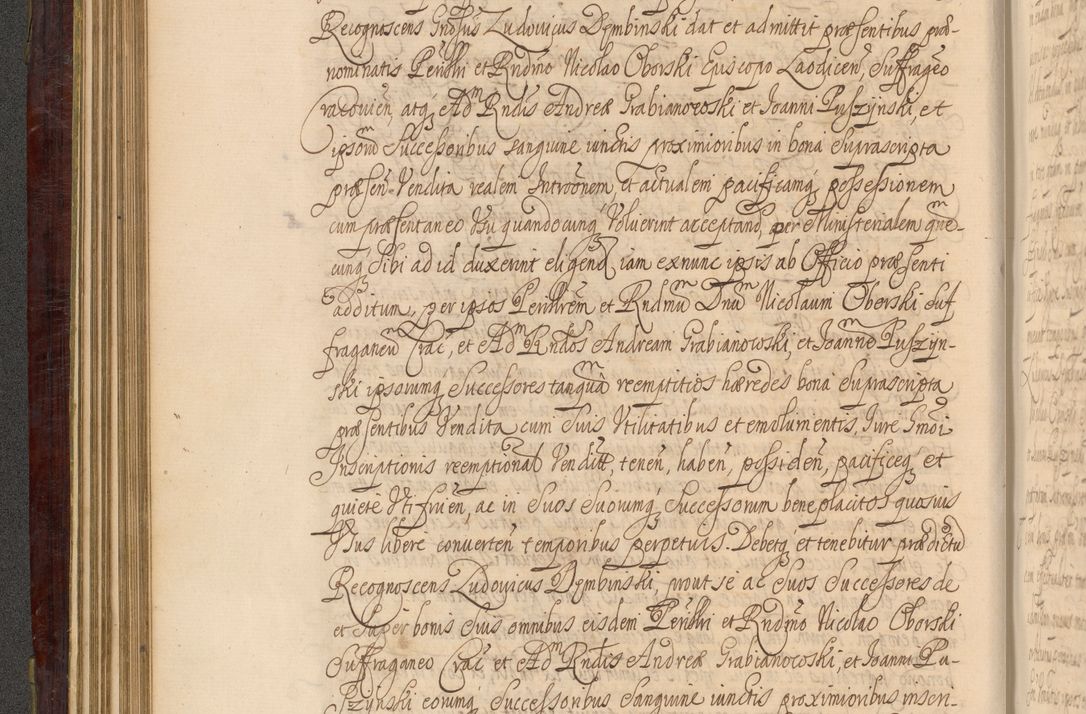 Recognoscens Gnosus Ludovicus Dembinski dat et admittit præsentibus præ-
nominatis Perilli et Rndmo Nicolao Oborski Episcopo Laodicen, Suffrageo
Cracovien, atq3 Adm Rndis Andreæ Grabianowski et Joanni Puszynski, et
ipsorum Successoribus sanguine iunctis proximioribus in bona Suprascripta
præsen. Vendita realem Introonem, et actualem pacificamq3 possessionem
cum præsentaneo Usu quandocunq3 Voluerint acceptand, per Ministerialem quem-
cunq3 Sibi ad id duxerint eligend, iam exnunc ipsis ab Officio præsenti
additum, per ipsos Perillrem et Rndmum Dnum Nicolaum Oborski Suf
fraganeum Crac, et Adm Rndos Andream Grabianowski, et Joannem Puszyn-
ski ipsorumq3 Successores tanquam reemptitios hæredes bona Suprascripta
præsentibus Vendita cum Suis Utilitatibus et emolumentis, Jure Smoi
Inscriptionis reemptional Venditt, tenen, haben, possiden, pacificeq3 et
quiete Uti fruen, ac in Suos Suorumq3 Successorum beneplacitos quosvis
Usus libere converten temporibus perpetuis. Debetq3 et tenebitur prædictus
Recognoscens Ludovicus Dembinski, prout se ac Suos Successores de
et Super bonis Suis omnibus eisdem Perilli et Rndmo Nicolao Oborski
Suffraganeo Crac et Adm Rndis Andreæ Grabianowski, et Joanni Pu-
szynski eorumq3 Successoribus Sanguine iunctis proximioribus inscri-